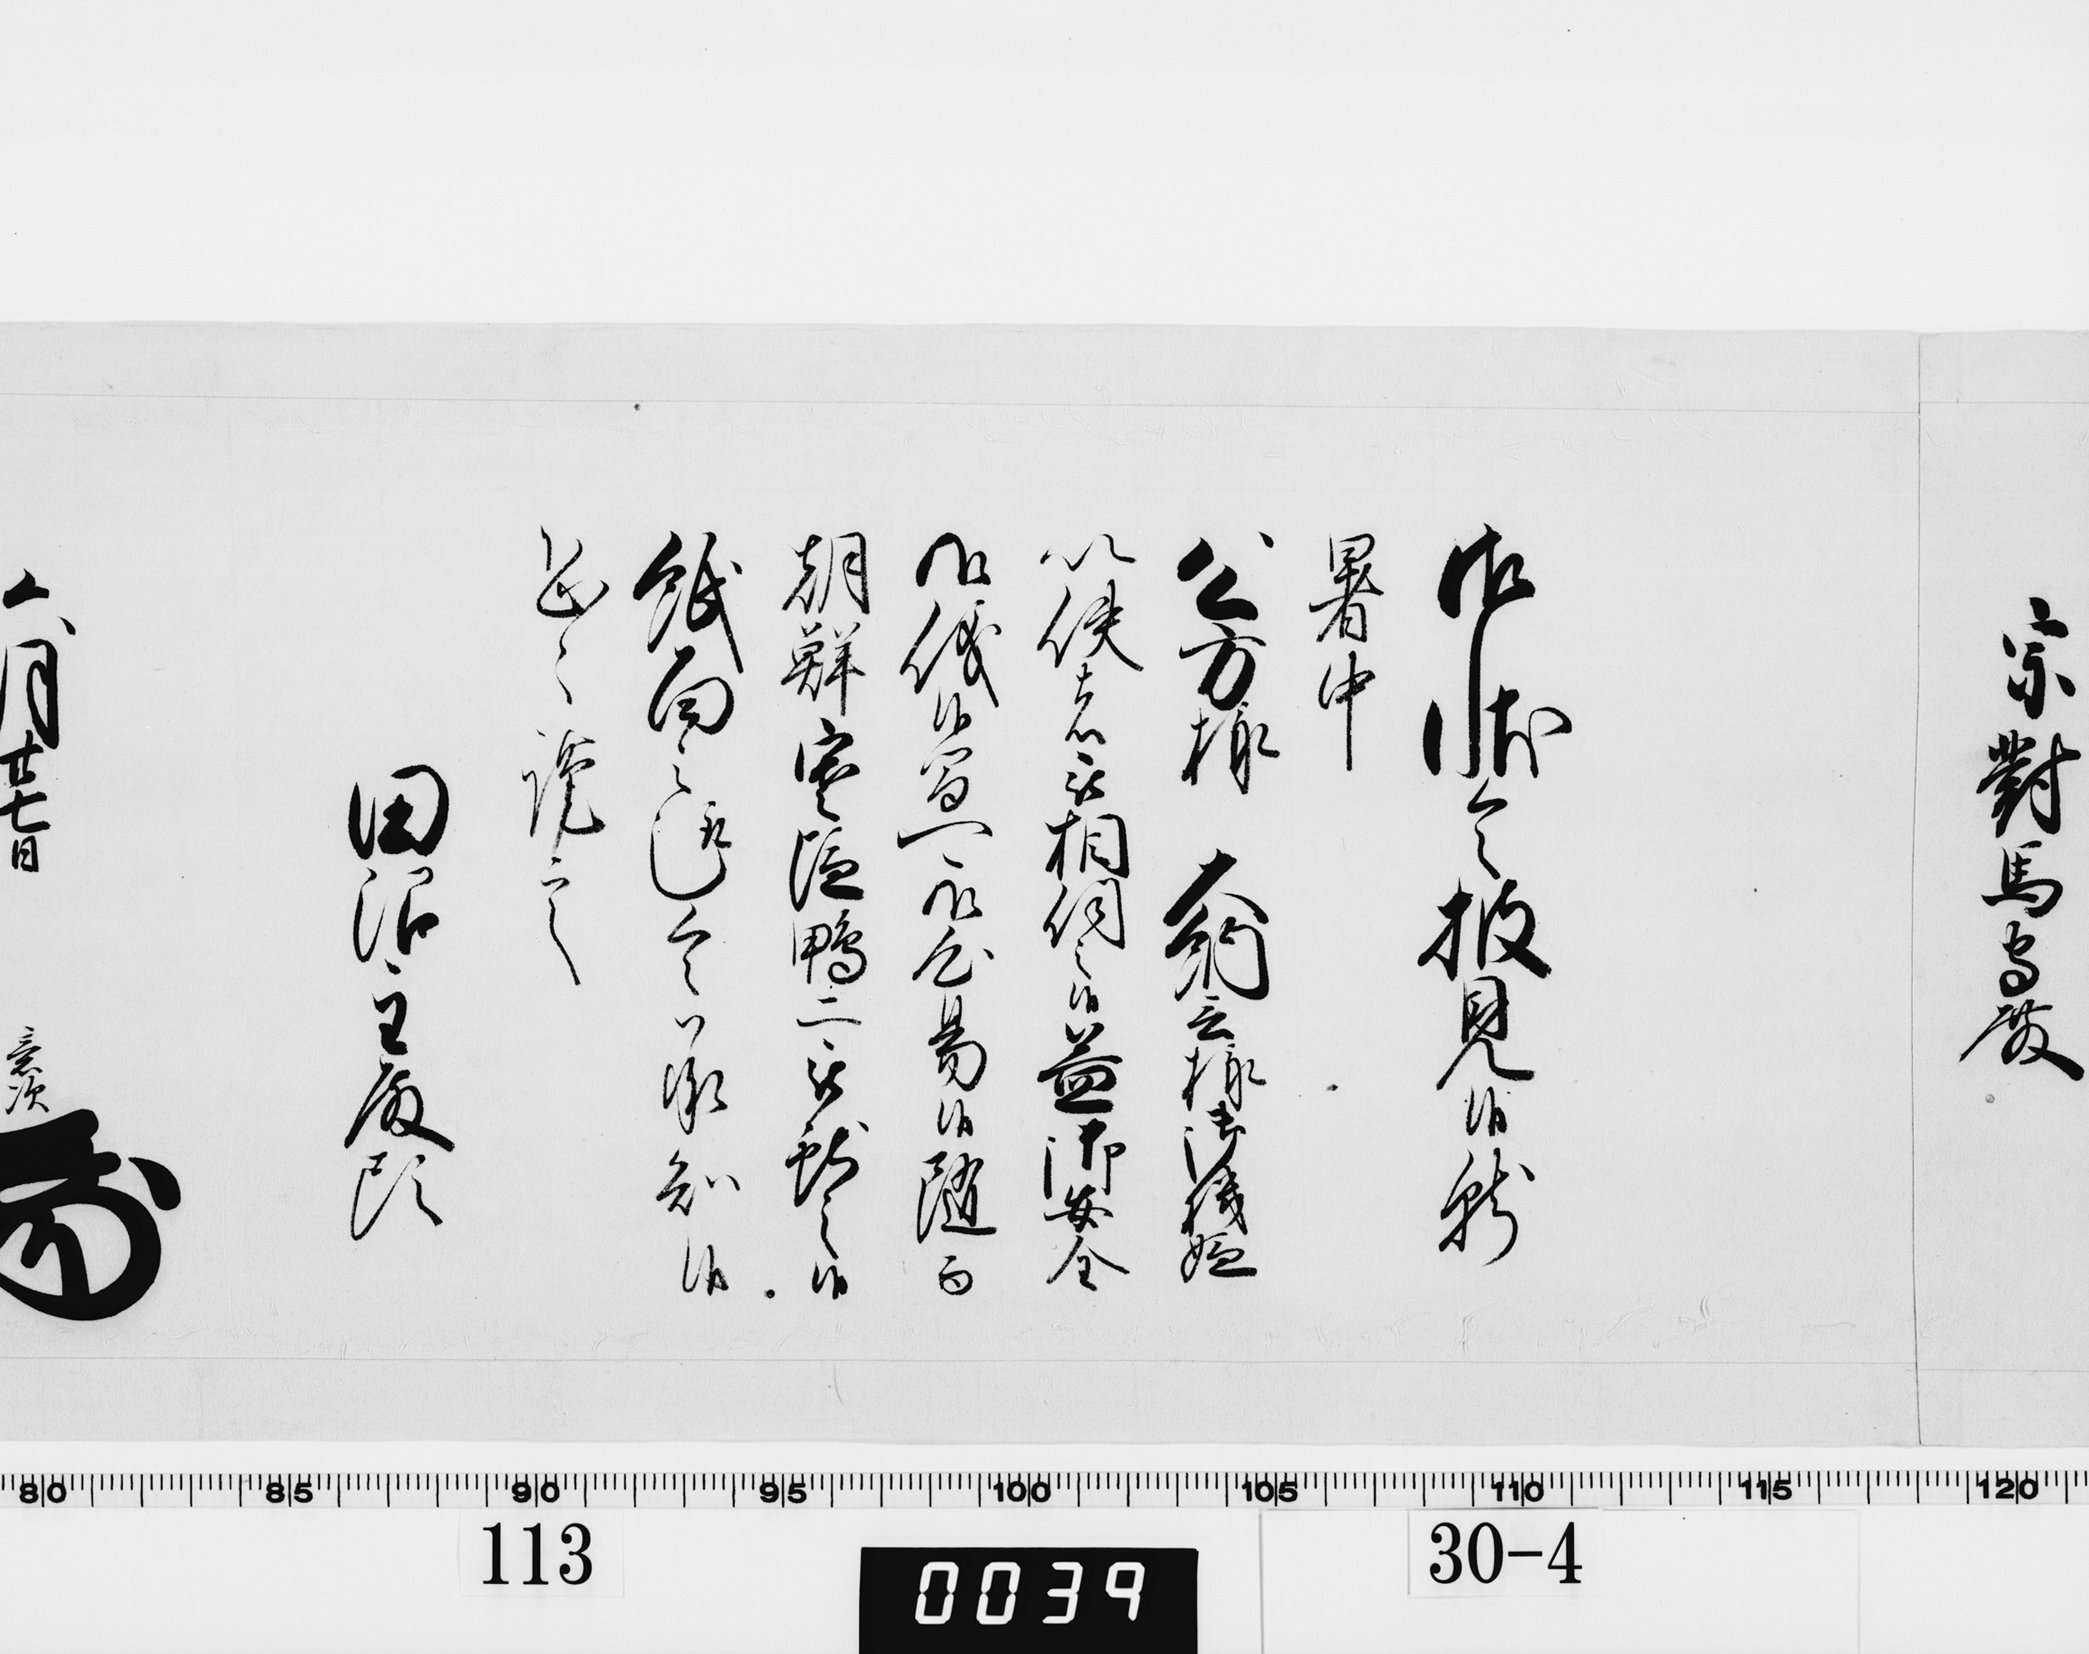 宗對馬守殿
御状令披見候就
暑中
公方様 大納言様御機嫌
以使者被相伺之候益御安全
御儀候間可御心易候随而
朝鮮寒塩鴨二被献之候
紙面之趣令承知候
恐々謹言
田沼主殿頭
六月廿七日
意次
80 85 90 95 100 105 110 115 120
113
0039
30-4